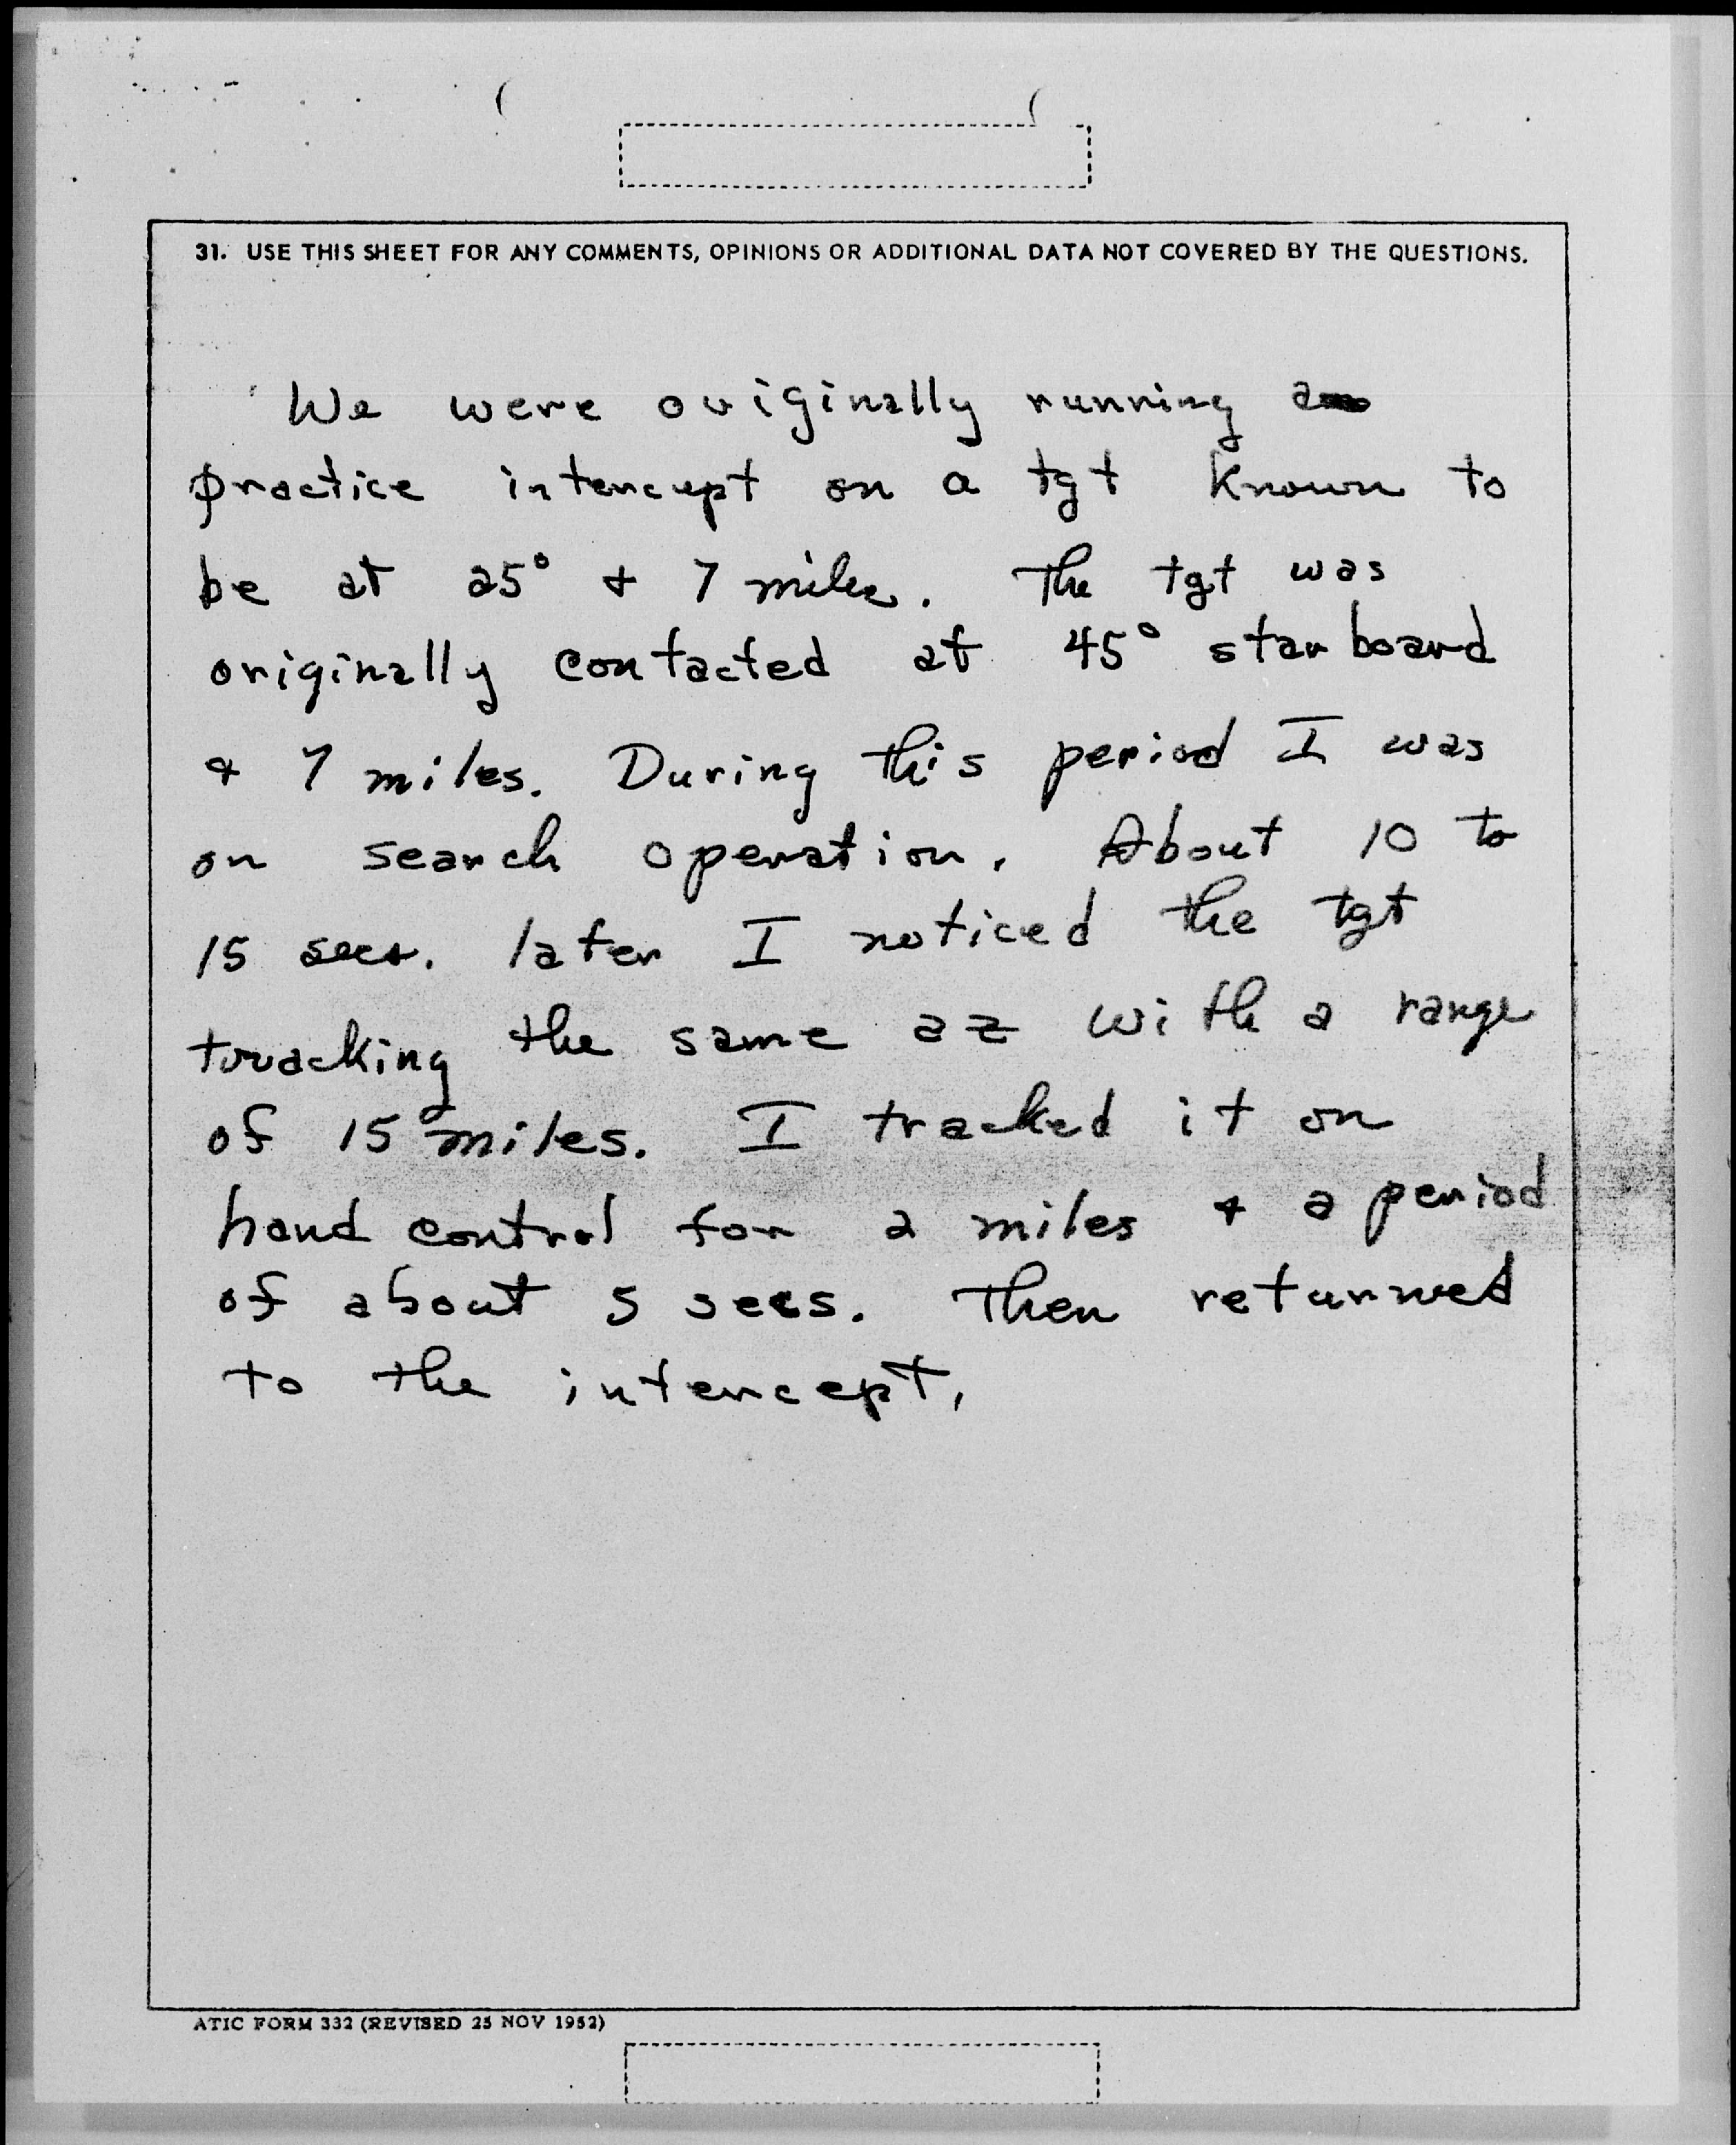 31. USE THIS SHEET FOR ANY COMMENTS, OPINIONS OR ADDITIONAL DATA NOT COVERED BY THE QUESTIONS.
We were originally running a
practice intercept on a tgt known to
be at 25° & 7 miles. The tgt was
originally contacted at 45° starboard
& 7 miles. During this period I was
on search operation. About 10 to
15 secs. later I noticed the tgt
tracking the same az with a range
of 15 miles. I tracked it on
hand control for 2 miles & a period
of about 5 secs. Then returned
to the intercept.
ATIC FORM 332 (REVISED 25 NOV 1952)